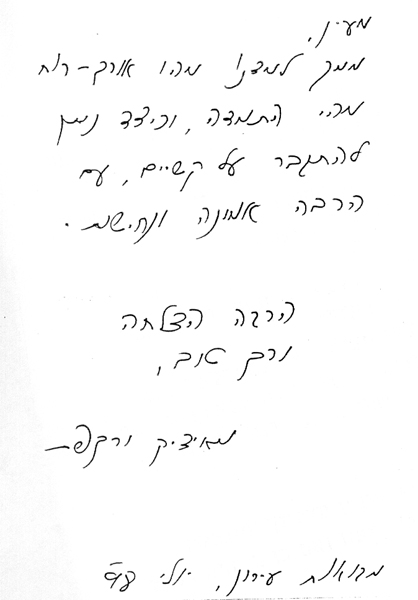 מעין,
ממך למדנו מהו אורך-רוח
מהי התמדה, וכיצד ניתן
להתגבר על קשיים, עם
הרבה אמונה ונחישות.
הרבה הצלחה
ורק טוב,
מאיציק ורקפת
מבואות עירון, יולי